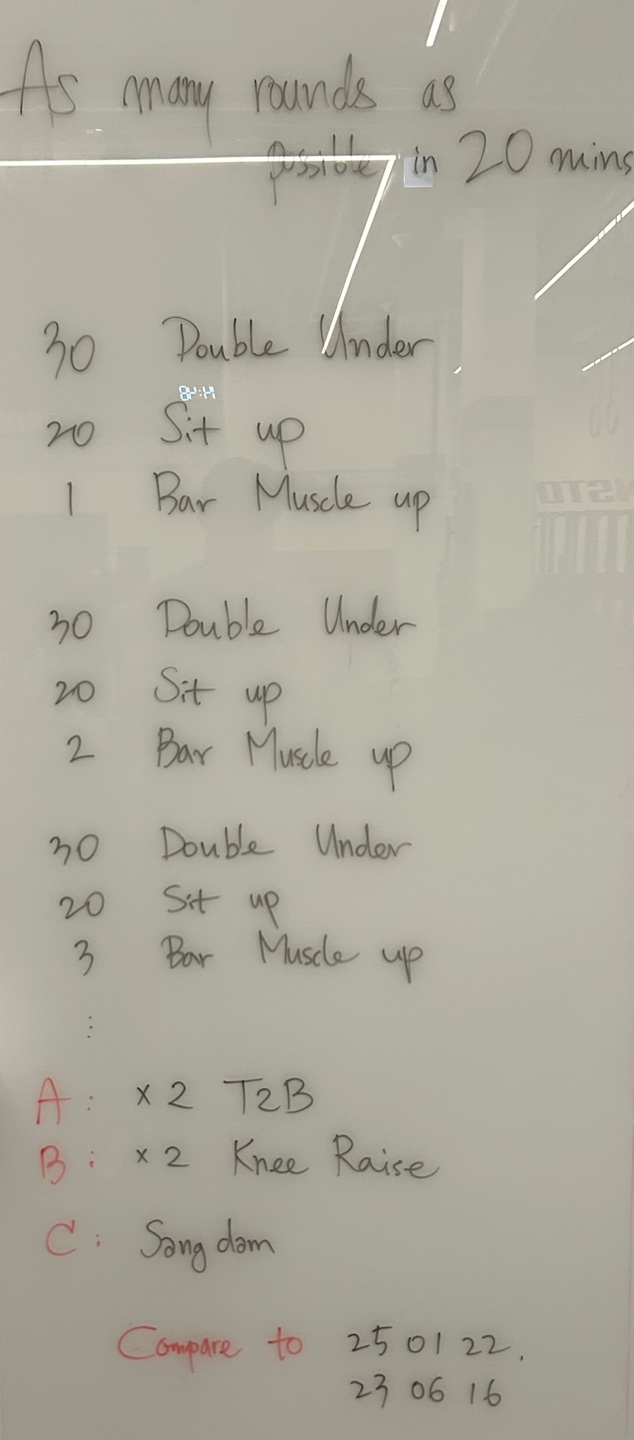 As many rounds as
possible in 20 mins
30 Double Under
20 Sit up
1 Bar Muscle up
30 Double Under
20 Sit up
2 Bar Muscle up
30 Double Under
20 Sit up
3 Bar Muscle up
⋮
A: x 2 T2B
B: x 2 Knee Raise
C: Sang dam
Compare to 25 01 22.
23 06 16